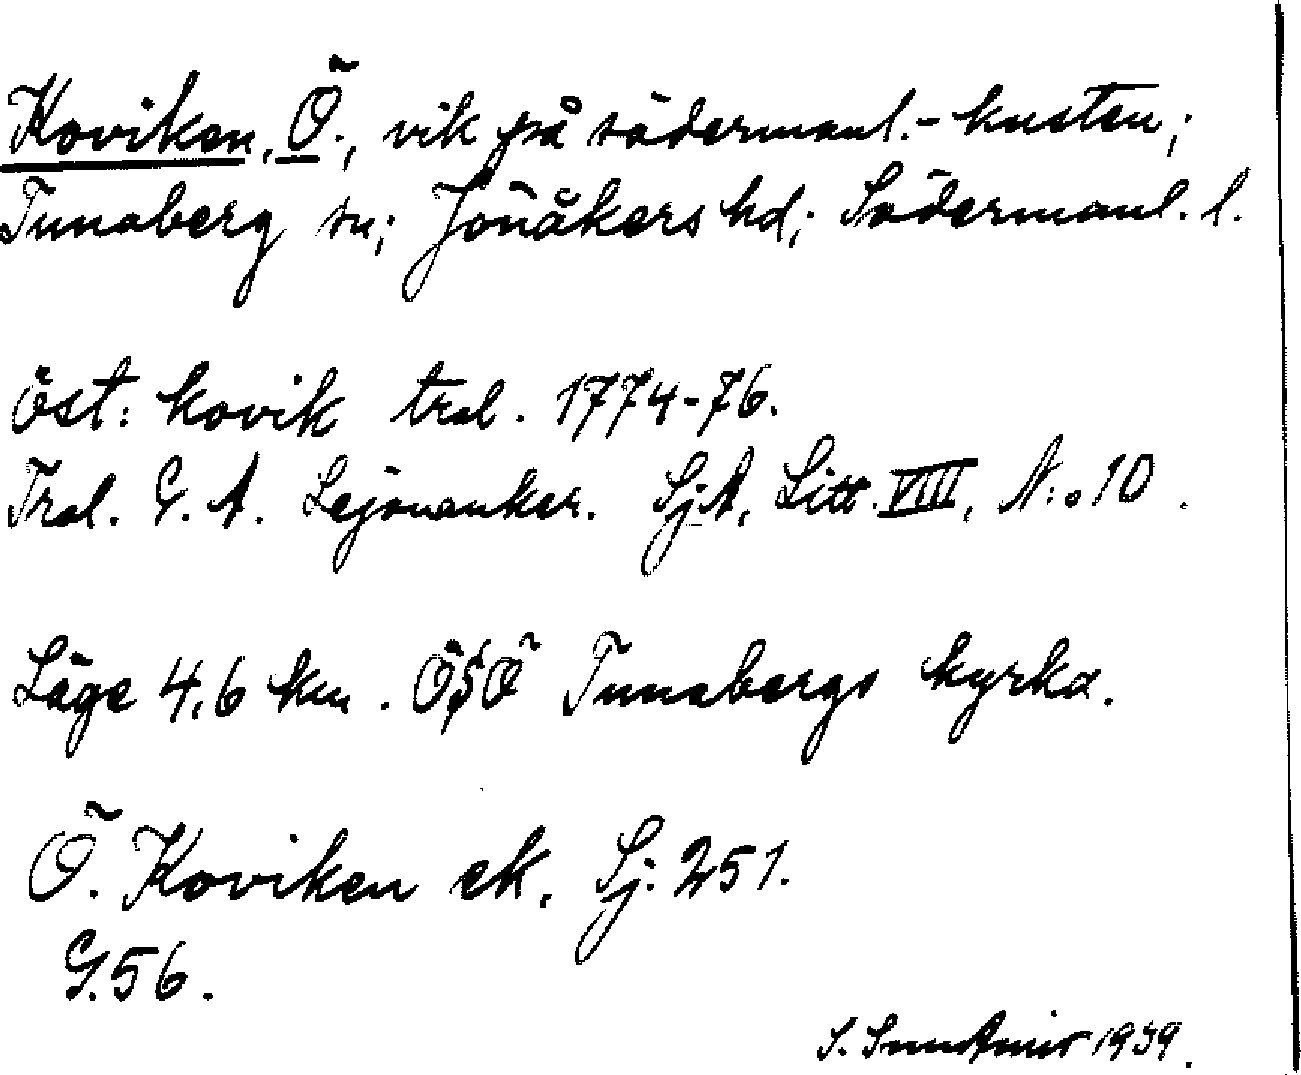 Koviken, Ö., vik på södermanl.-kusten;
Tunaberg sn; Jönåkers hd; Södermanl. l.
öst: kovik trol. 1774-76.
Trol. G. A. Lejonanker. SjA, Litt. VIII, N:o 10.
Läge 4,6 km. ÖSÖ Tunabergs kyrka.
Ö. Koviken ek. Sj. 251.
G. 56.
S. 1939.